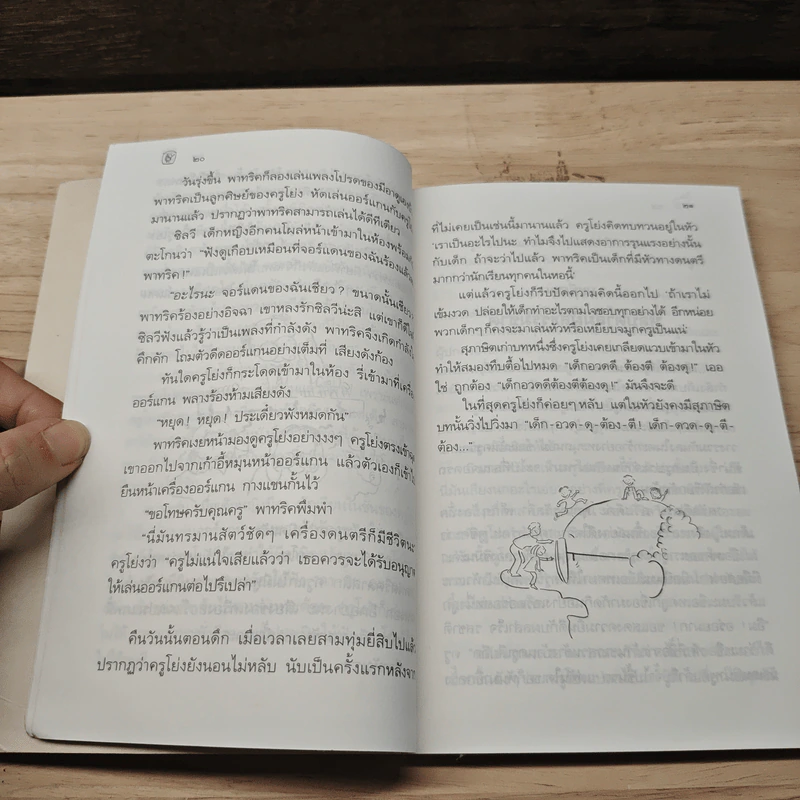 ๒๐
วันรุ่งขึ้น พาทริคก็ลองเล่นเพลงโปรดของมือ
พาทริคเป็นลูกศิษย์ของครูโย่ง หัดเล่นออร์แกนกับครู
มานานแล้ว ปรากฏว่าพาทริคสามารถเล่นได้ดีทีเดียว
ซิลวี เด็กหญิงอีกคนโผล่หน้าเข้ามาในห้องพร้อม
ตะโกนว่า “ฟังดูเกือบเหมือนที่จอร์แดนของฉันร้องแล้ว
พาทริค!”
“อะไรนะ จอร์แดนของฉันเชียว? ขนาดนั้นเชียว
พาทริคร้องอย่างอิจฉา เขาหลงรักซิลวีน่ะสิ แต่เขาก็
ซิลวีฟังแล้วรู้ว่าเป็นเพลงที่กำลังดัง พาทริคจึงเกิดกำลัง
คึกคัก โถมตัวดีดออร์แกนอย่างเต็มที่ เสียงดังก้อง
ทันใดครูโย่งก็กระโดดเข้ามาในห้อง รี่เข้ามาที่
ออร์แกน พลางร้องห้ามเสียงดัง
“หยุด! หยุด! ประเดี๋ยวพังหมดกัน”
พาทริคเงยหน้ามองดูครูโย่งอย่างงงๆ ครูโย่งตรงเข้า
เขาออกไปจากเก้าอี้หมุนหน้าออร์แกน แล้วตัวเองก็เข้าไป
ยืนหน้าเครื่องออร์แกน กางแขนกั้นไว้
“ขอโทษครับคุณครู” พาทริคพึมพำ
“นี่มันทรมานสัตว์ชัดๆ เครื่องดนตรีก็มีชีวิตนะ
ครูโย่งว่า “ครูไม่แน่ใจเสียแล้วว่า เธอควรจะได้รับอนุญาต
ให้เล่นออร์แกนต่อไปรึเปล่า”
คืนวันนั้นตอนดึก เมื่อเวลาเลยสามทุ่มยี่สิบไปแล้ว
ปรากฏว่าครูโย่งยังนอนไม่หลับ นับเป็นครั้งแรกหลังจาก
๒๑
ที่ไม่เคยเป็นเช่นนี้มานานแล้ว ครูโย่งคิดทบทวนอยู่ในหัว
‘เราเป็นอะไรไปนะ ทำไมจึงไปแสดงอาการรุนแรงอย่างนั้น
กับเด็ก ถ้าจะว่าไปแล้ว พาทริคเป็นเด็กที่มีหัวทางดนตรี
มากกว่านักเรียนทุกคนในหอนี้’
แต่แล้วครูโย่งก็รีบปัดความคิดนี้ออกไป ‘ถ้าเราไม่
เข้มงวด ปล่อยให้เด็กทำอะไรตามใจชอบทุกอย่างได้ อีกหน่อย
พวกเด็กๆ ก็คงจะมาเล่นหัวหรือเหยียบจมูกครูเป็นแน่’
สุภาษิตเก่าบทหนึ่งซึ่งครูโย่งเคยเกลียดแวบเข้ามาในหัว
ทำให้สมองทึบตื้อไปหมด “เด็กอวดดี ต้องตี ต้องดุ!” เออ
ใช่ ถูกต้อง “เด็กอวดดีต้องตีต้องดุ!” มันจึงจะดี
ในที่สุดครูโย่งก็ค่อยๆ หลับ แต่ในหัวยังคงมีสุภาษิต
บทนั้นวิ่งไปวิ่งมา “เด็ก-อวด-ดุ-ต้อง-ตี! เด็ก-ดวด-ดุ-ตี-
ต้อง...”